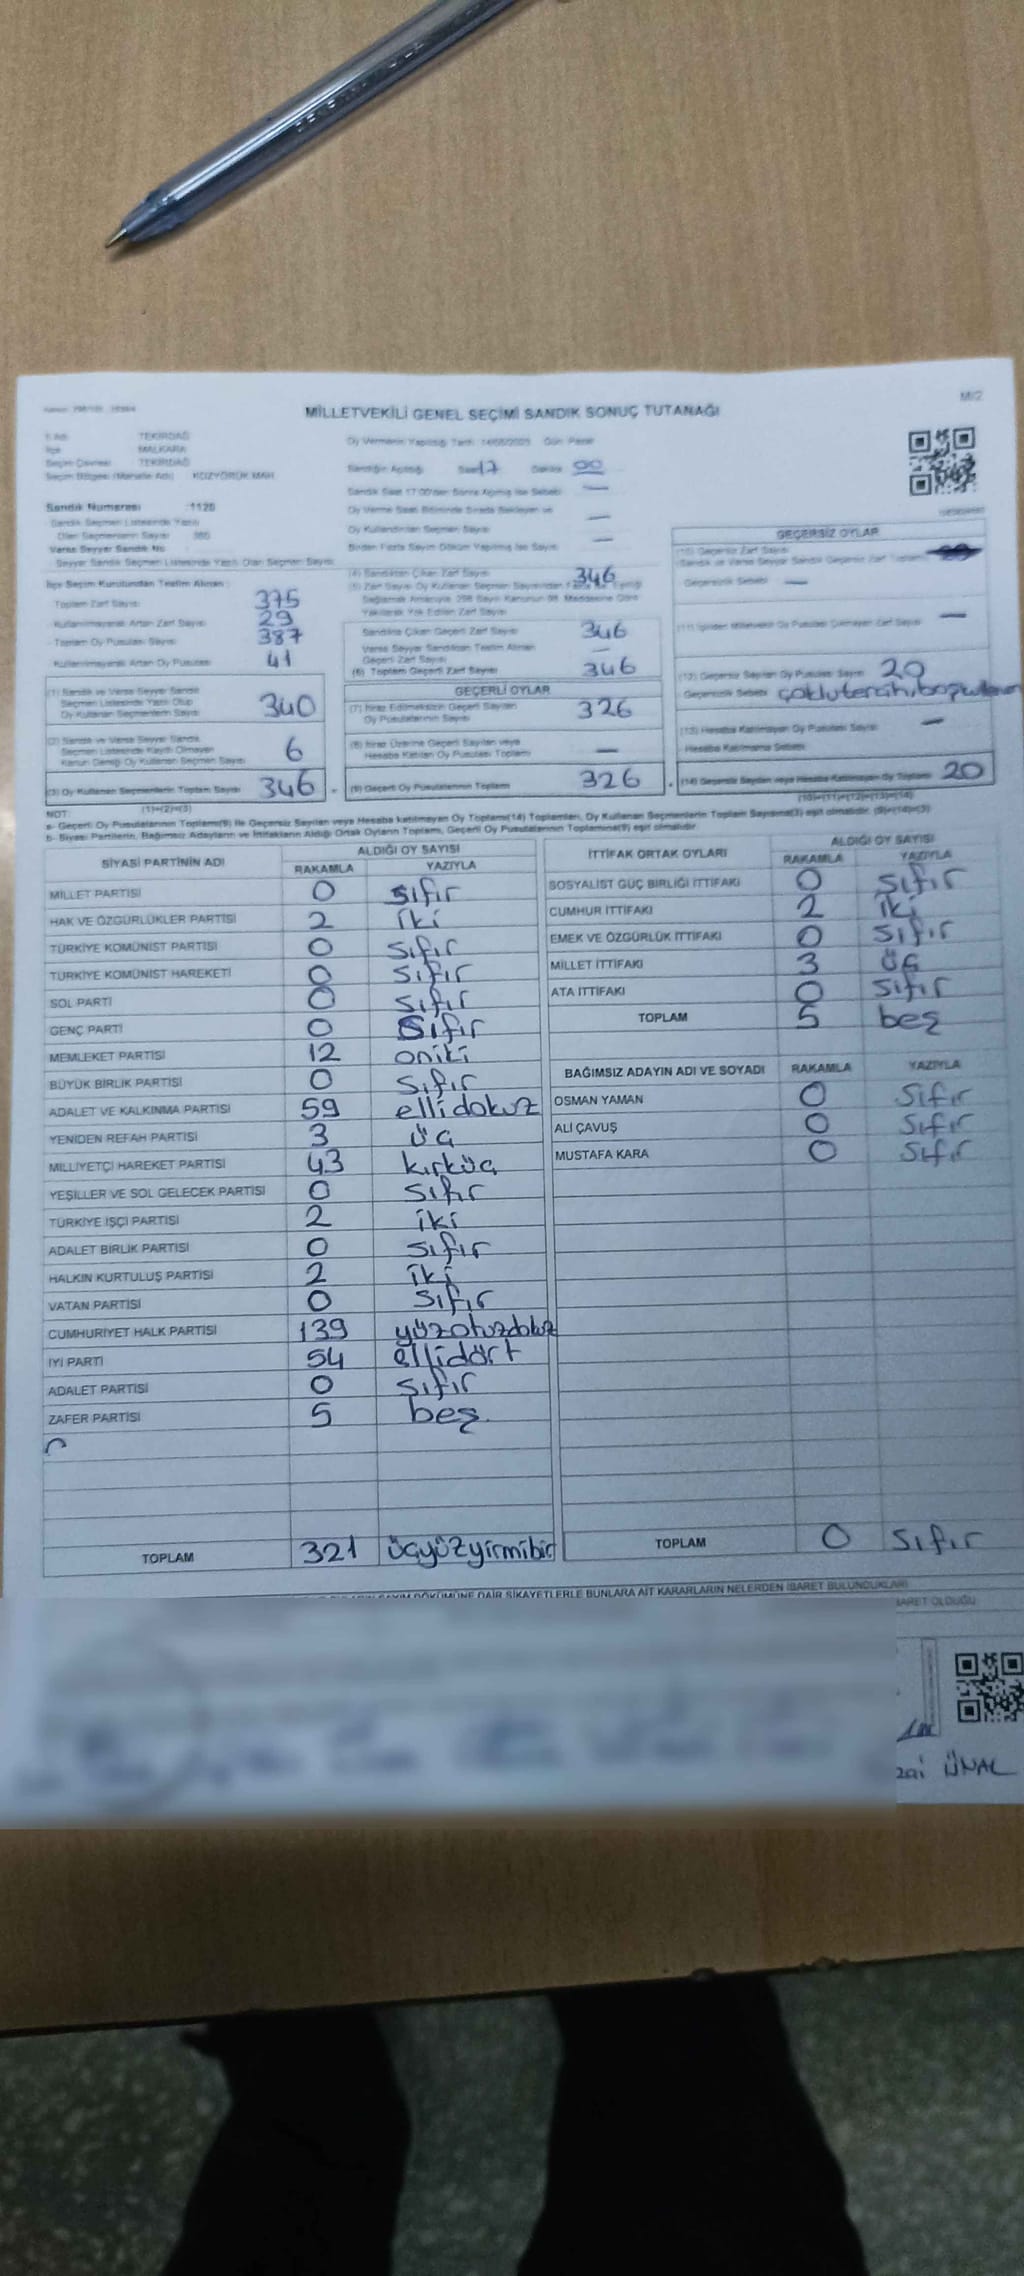 MİLLETVEKİLİ GENEL SEÇİMİ SANDIK SONUÇ TUTANAĞI
İl Adı TEKİRDAĞ
İlçe MALKARA
Seçim Çevresi TEKİRDAĞ
Seçim Bölgesi (Mahalle Adı) KOZYÖRÜK MAH.
Sandık Numarası :1120
Oy Vermenin Yapıldığı Tarih :14/05/2023 Gün: Pazar
Sandığın Açıldığı Saat 17 Dakika 00
Sandık Saat 17:00'den Sonra Açılmış İse Sebebi —
Oy Verme Saati Bitiminde Sırada Bekleyen ve
Oy Kullandırılan Seçmen Sayısı —
Birden Fazla Sayım Döküm Yapılmış İse Sayısı —
Sandık Seçmen Listesinde Yazılı
Olan Seçmenlerin Sayısı
Varsa Seyyar Sandık No
Seyyar Sandık Seçmen Listesinde Yazılı Olan Seçmen Sayısı
İlçe Seçim Kurulundan Teslim Alınan :
Toplam Zarf Sayısı 375
Kullanılmayarak Artan Zarf Sayısı 29
Toplam Oy Pusulası Sayısı 387
Kullanılmayarak Artan Oy Pusulası 41
(1) Sandık ve Varsa Seyyar Sandık
Seçmen Listesinde Yazılı Olup
Oy Kullanan Seçmenlerin Sayısı 340
(2) Sandık ve Varsa Seyyar Sandık
Seçmen Listesinde Kayıtlı Olmayan
Kanun Gereği Oy Kullanan Seçmen Sayısı 6
(3) Oy Kullanan Seçmenlerin Toplam Sayısı 346
(1)+(2)=(3)
(4) Sandıktan Çıkan Zarf Sayısı 346
Sandıkta Çıkan Geçerli Zarf Sayısı 346
Varsa Seyyar Sandıktan Teslim Alınan
Geçerli Zarf Sayısı —
(6) Toplam Geçerli Zarf Sayısı 346
GEÇERLİ OYLAR
(7) İtiraz Edilmeksizin Geçerli Sayılan
Oy Pusulalarının Sayısı 326
(8) İtiraz Üzerine Geçerli Sayılan veya
Hesaba Katılan Oy Pusulası Toplamı —
(9) Geçerli Oy Pusulalarının Toplamı 326
GEÇERSİZ OYLAR
(10) Geçersiz Zarf Sayısı
Geçersizlik Sebebi —
(12) Geçersiz Sayılan Oy Pusulası Sayısı 20
Geçersizlik Sebebi
(13) Hesaba Katılmayan Oy Pusulası Sayısı —
Hesaba Katılmama Sebebi
(14) Geçersiz Sayılan veya Hesaba Katılmayan Oy Toplamı 20
(10)+(11)+(12)+(13)=(14)
NOT:
a- Geçerli Oy Pusulalarının Toplamı(9) ile Geçersiz Sayılan veya Hesaba katılmayan Oy Toplamı(14) Toplamları, Oy Kullanan Seçmenlerin Toplam Sayısına(3) eşit olmalıdır. (9)+(14)=(3)
b- Siyasi Partilerin, Bağımsız Adayların ve İttifakların Aldığı Ortak Oyların Toplamı, Geçerli Oy Pusulalarının Toplamına(9) eşit olmalıdır.
SİYASİ PARTİNİN ADI ALDIĞI OY SAYISI
RAKAMLA YAZIYLA
MİLLET PARTİSİ 0 sıfır
HAK VE ÖZGÜRLÜKLER PARTİSİ 2 iki
TÜRKİYE KOMÜNİST PARTİSİ 0 sıfır
TÜRKİYE KOMÜNİST HAREKETİ 0 sıfır
SOL PARTİ 0 sıfır
GENÇ PARTİ 0 sıfır
MEMLEKET PARTİSİ 12 oniki
BÜYÜK BİRLİK PARTİSİ 0 sıfır
ADALET VE KALKINMA PARTİSİ 59 ellidokuz
YENİDEN REFAH PARTİSİ 3 üç
MİLLİYETÇİ HAREKET PARTİSİ 43 kırküç
YEŞİLLER VE SOL GELECEK PARTİSİ 0 sıfır
TÜRKİYE İŞÇİ PARTİSİ 2 iki
ADALET BİRLİK PARTİSİ 0 sıfır
HALKIN KURTULUŞ PARTİSİ 2 iki
VATAN PARTİSİ 0 sıfır
CUMHURİYET HALK PARTİSİ 139 yüzotuzdokuz
İYİ PARTİ 54 ellidört
ADALET PARTİSİ 0 sıfır
ZAFER PARTİSİ 5 beş
TOPLAM 321 üçyüzyirmibir
İTTİFAK ORTAK OYLARI ALDIĞI OY SAYISI
RAKAMLA YAZIYLA
SOSYALİST GÜÇ BİRLİĞİ İTTİFAKI 0 sıfır
CUMHUR İTTİFAKI 2 iki
EMEK VE ÖZGÜRLÜK İTTİFAKI 0 sıfır
MİLLET İTTİFAKI 3 üç
ATA İTTİFAKI 0 sıfır
TOPLAM 5 beş
BAĞIMSIZ ADAYIN ADI VE SOYADI RAKAMLA YAZIYLA
OSMAN YAMAN 0 sıfır
ALİ ÇAVUŞ 0 sıfır
MUSTAFA KARA 0 sıfır
TOPLAM 0 sıfır
DÖKÜMÜNE DAİR ŞİKAYETLERLE BUNLARA AİT KARARLARIN NELERDEN İBARET BULUNDUKLARI
İBARET OLDUĞU
ÜNAL